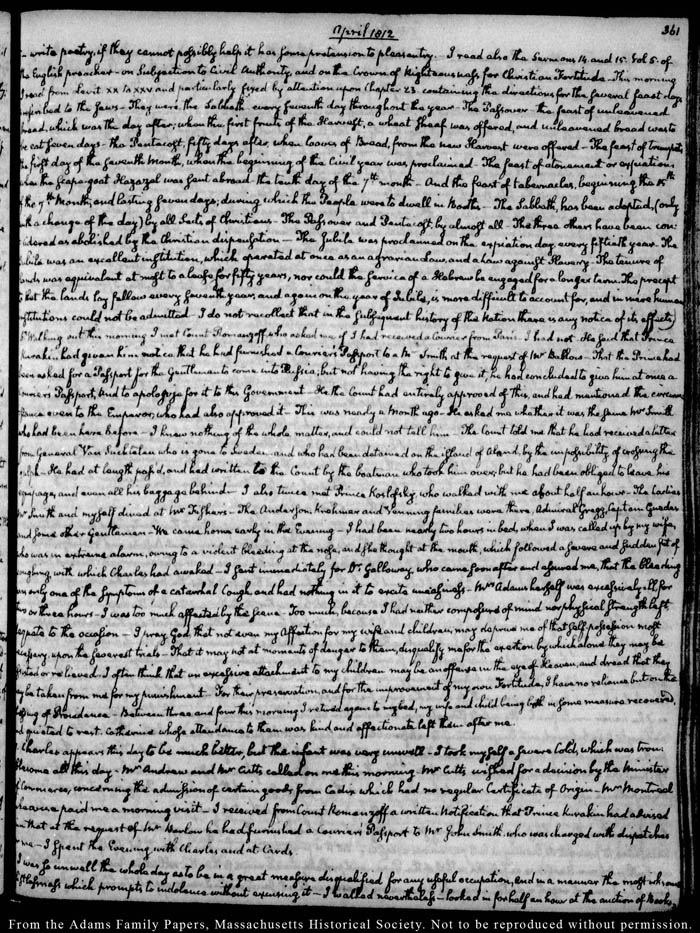 April 1812
361
write poetry, if they cannot possibly help it has some pretension to pleasantry. I read also the Sermons 14 and 15. Vol 5. of
the English preacher - on Subjection to Civil Authority, and on the Crown of Righteousness for Christian Fortitude - This morning
I read from Levit XX to XXV and particularly fixed by attention upon Chapter 23. containing the directions for the several feast days
prescribed to the Jews - They were the Sabbath every seventh day throughout the year - The Passover - the feast of unleavened
bread, which was the day after; when the first fruits of the Harvest, a wheat Sheaf was offered, and unleavened bread was to
be eat seven days - the Pentecost, fifty days after, when loaves of Bread, from the new Harvest were offered - The feast of trumpets
the first day of the seventh month, when the beginning of the Civil year was proclaimed - The feast of atonement or expiation
when the scape-goat Hazazel was sent abroad the tenth day of the 7th month - And the feast of tabernacles, beginning the 15th
of the 7th Month, and lasting seven days; during which the People were to dwell in Booths - The Sabbath, has been adopted, (only
with a change of the day) by all Sects of Christians - The Passover and Pentecost, by almost all - The three others have been con-
sidered as abolished by the Christian dispensation - The Jubile was proclaimed on the expiation day, every fiftieth year. The
Jubile was an excellent institution, which operated at once as an agrarian Law, and a Law against Slavery - The tenure of
lands was equivalent at most to a lease for fifty years, nor could the service of a Hebrew be engaged for a longer term. The precept
to let the lands lay fallow every seventh year, and again on the year of Jubile, is more difficult to account for, and in mere human
institutions could not be admitted - I do not recollect that in the subsequent history of the Nation there is any notice of its effects)
Walking out this morning I met Count Romanzoff who asked me if I had received a Courier from Paris - I had not - He said that Prince
Kurakin had given him notice that he had furnished a Courier's Passport to a Mr Smith at the request of Mr Barlow - That the Prince had
been asked for a Passport for the Gentleman to come into Russia; but not having the right to give it, he had concluded to give him at once a
Courier's Passport, and to apologise for it to this Government - He the Count had entirely approved of this, and had mentioned the circum-
stance even to the Emperor, who had also approved it - This was nearly a month ago - He asked me whether it was the same Mr Smith
who had been here before - I knew nothing of the whole matter, and could not tell him - The Count told me that he had received a letter
from General Van Suchtelen who is gone to Sweden and who had been detained on the island of Aland, by the impossibility of crossing the
Gulph - He had at length pass'd, and had written to the Count by the boatman who took him over; but he had been obliged to leave his
equipage, and even all his baggage behind - I also twice met Prince Koslofsky, who walked with me about half an hour - The Ladies
Mr Smith and myself dined at Mr Fisher's - The Anderson, Krehmer and Venning families were there, Admiral Gregg, Captain Guedes
and some other Gentlemen - We came home early in the Evening - I had been nearly two hours in bed, when I was called up by my wife,
who was in extreme alarm, owing to a violent bleeding at the nose, and she thought at the mouth, which followed a severe and sudden fit of
coughing, with which Charles had awaked - I sent immediately for Dr. Galloway, who came soon after and assured me, that the bleeding
was only one of the symptoms of a catarrhal Cough, and had nothing in it to excite uneasiness - Mrs Adams herself was excessively ill for
two or three hours - I was too much affected by the scene - Too much, because I had neither composure of mind nor physical strength left
adequate to the occasion - I pray God that not even my Affection for my wife and children, may deprive me of that self possession most
necessary upon the severest trials - That it may not at moments of danger to them, disqualify me for the exertion by which alone they may be
assisted or relieved. I often think that an excessive attachment to my children may be an offence in the eye of Heaven, and dread that they
may be taken from me for my punishment. For their preservation, and for the improvement of my own Fortitude, I have no reliance but on the
blessing of Providence - Between three and four this morning I retired again to my bed, my wife and child being both in some measure recovered,
and quieted to rest. Catherine whose attendance to them was kind and affectionate left them after me.
Charles appears this day to be much better, but the infant was very unwell - I took myself a severe Cold, which was trou-
blesome all this day - Mr Andrew and Mr Cutts called on me this morning - Mr Cutts wished for a decision by the Minister
of Commerce, concerning the admission of certain goods from Cadiz which had no regular Certificate of Origin - Mr Montreal
also paid me a morning visit - I received from Count Romanzoff a written Notification that Prince Kurakin had advised
him that at the request of Mr Barlow he had furnished a Courier's Passport to Mr John Smith, who was charged with dispatches
for me - I spent the Evening with Charles and at Cards.
I was so unwell the whole day as to be in a great measure disqualified for any useful occupation, and in a manner the most irksome
listlessness which prompts to indolence without excusing it - I walked nevertheless - looked in for half an hour at the auction of Books
From the Adams Family Papers, Massachusetts Historical Society. Not to be reproduced without permission.